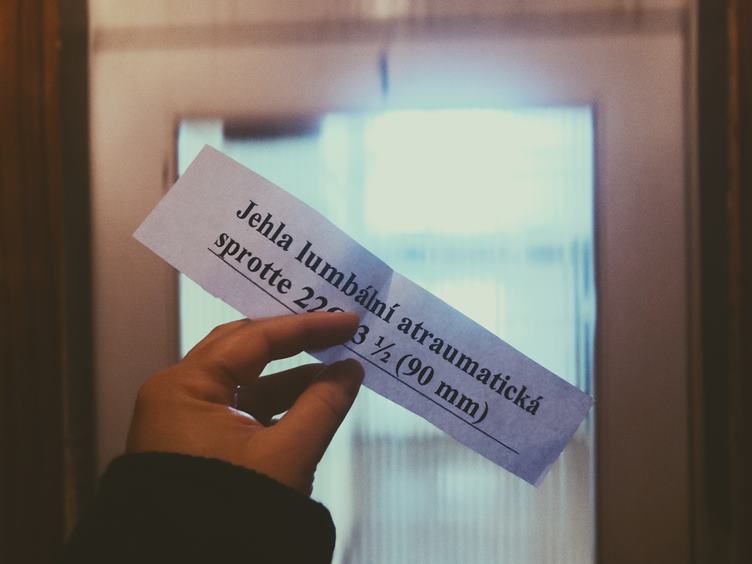 Jehla lumbální atraumatická
sprotte 22G 3 ½ (90 mm)